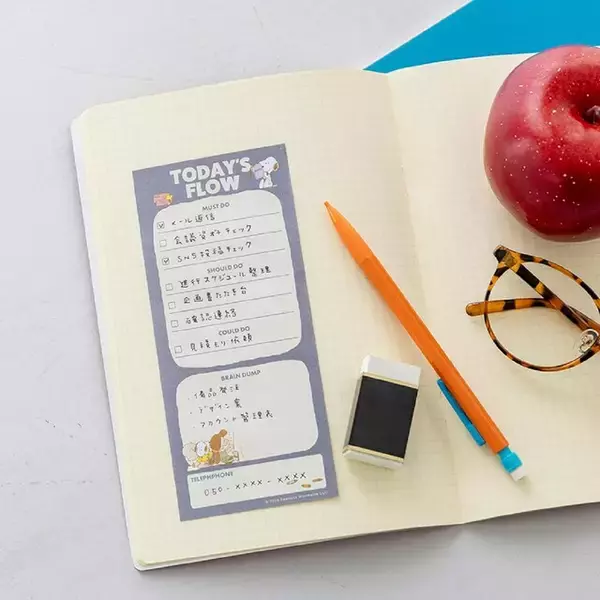 TODAY'S
FLOW
MUST DO
メール返信
会議資料チェック
SNS投稿チェック
SHOULD DO
進行スケジュール整理
企画書たたき台
確認連絡
COULD DO
見積もり依頼
BRAIN DUMP
・備品発注
・デザイン案
・アカウント管理表
TELEPHPHONE
050-xxxx-xxxx